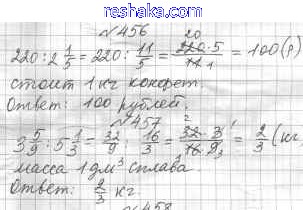 reshaka.com
№456
220 : 2 1/5 = 220 : 11/5 = 220·5/11 = 100 (р)
стоит 1 кг конфет.
Ответ: 100 рублей.
№457
3 5/9 : 5 1/3 = 32/9 : 16/3 = 32·3/16·9 = 2/3 (кг
масса 1 дм³ сплава.
Ответ: 2/3 кг.
№458